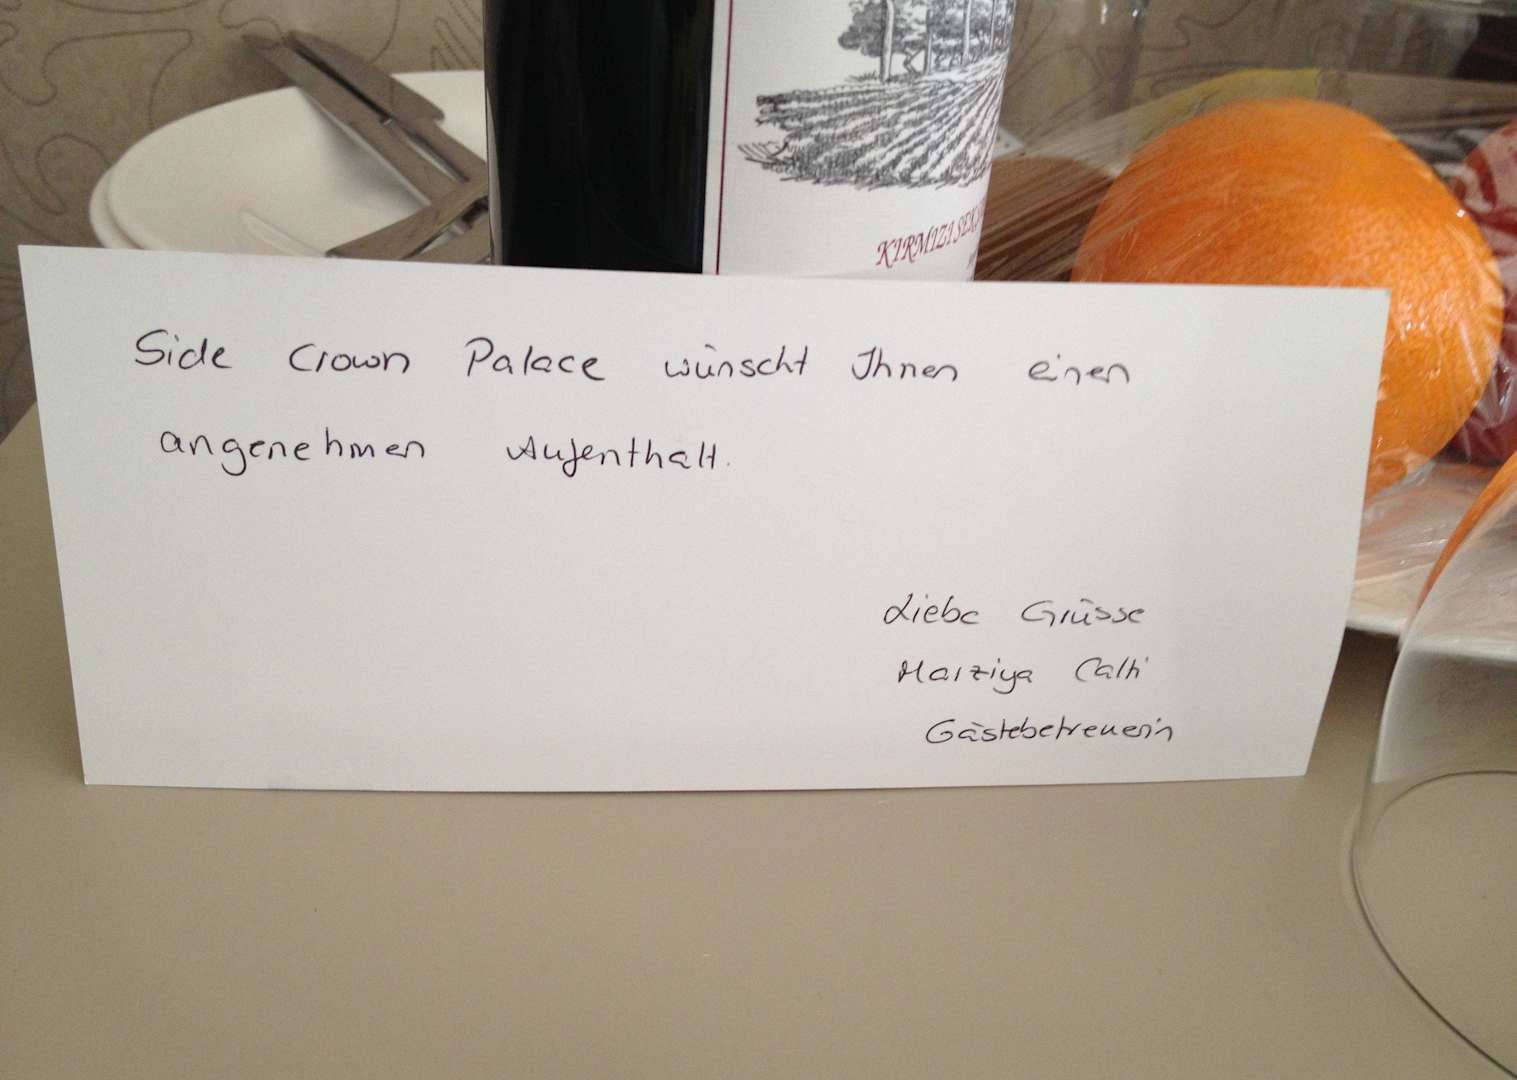 KIRMIZI SEK
Side Crown Palace wünscht Ihnen einen
angenehmen Aufenthalt.
Liebe Grüsse
Marziya
Gästebetreuerin